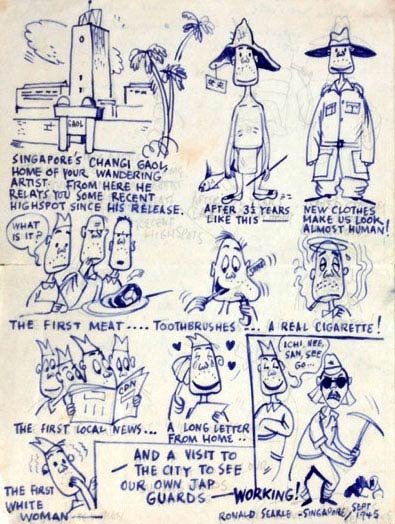 GAOL
SINGAPORE'S CHANGI GAOL,
HOME OF YOUR WANDERING
ARTIST. FROM HERE HE
RELATES YOU SOME RECENT
HIGHSPOTS SINCE HIS RELEASE.
AFTER 3½ YEARS
LIKE THIS
NEW CLOTHES
MAKE US LOOK
ALMOST HUMAN!
WHAT
IS IT?
THE FIRST MEAT.... TOOTHBRUSHES ... A REAL CIGARETTE!
THE FIRST LOCAL NEWS...
A LONG LETTER
FROM HOME..
ICHI, NEE,
SAN, SEE
GO...
THE FIRST
WHITE
WOMAN
AND A VISIT TO
THE CITY TO SEE
OUR OWN JAP
GUARDS — WORKING!
RONALD SEARLE - SINGAPORE / SEPT
1945